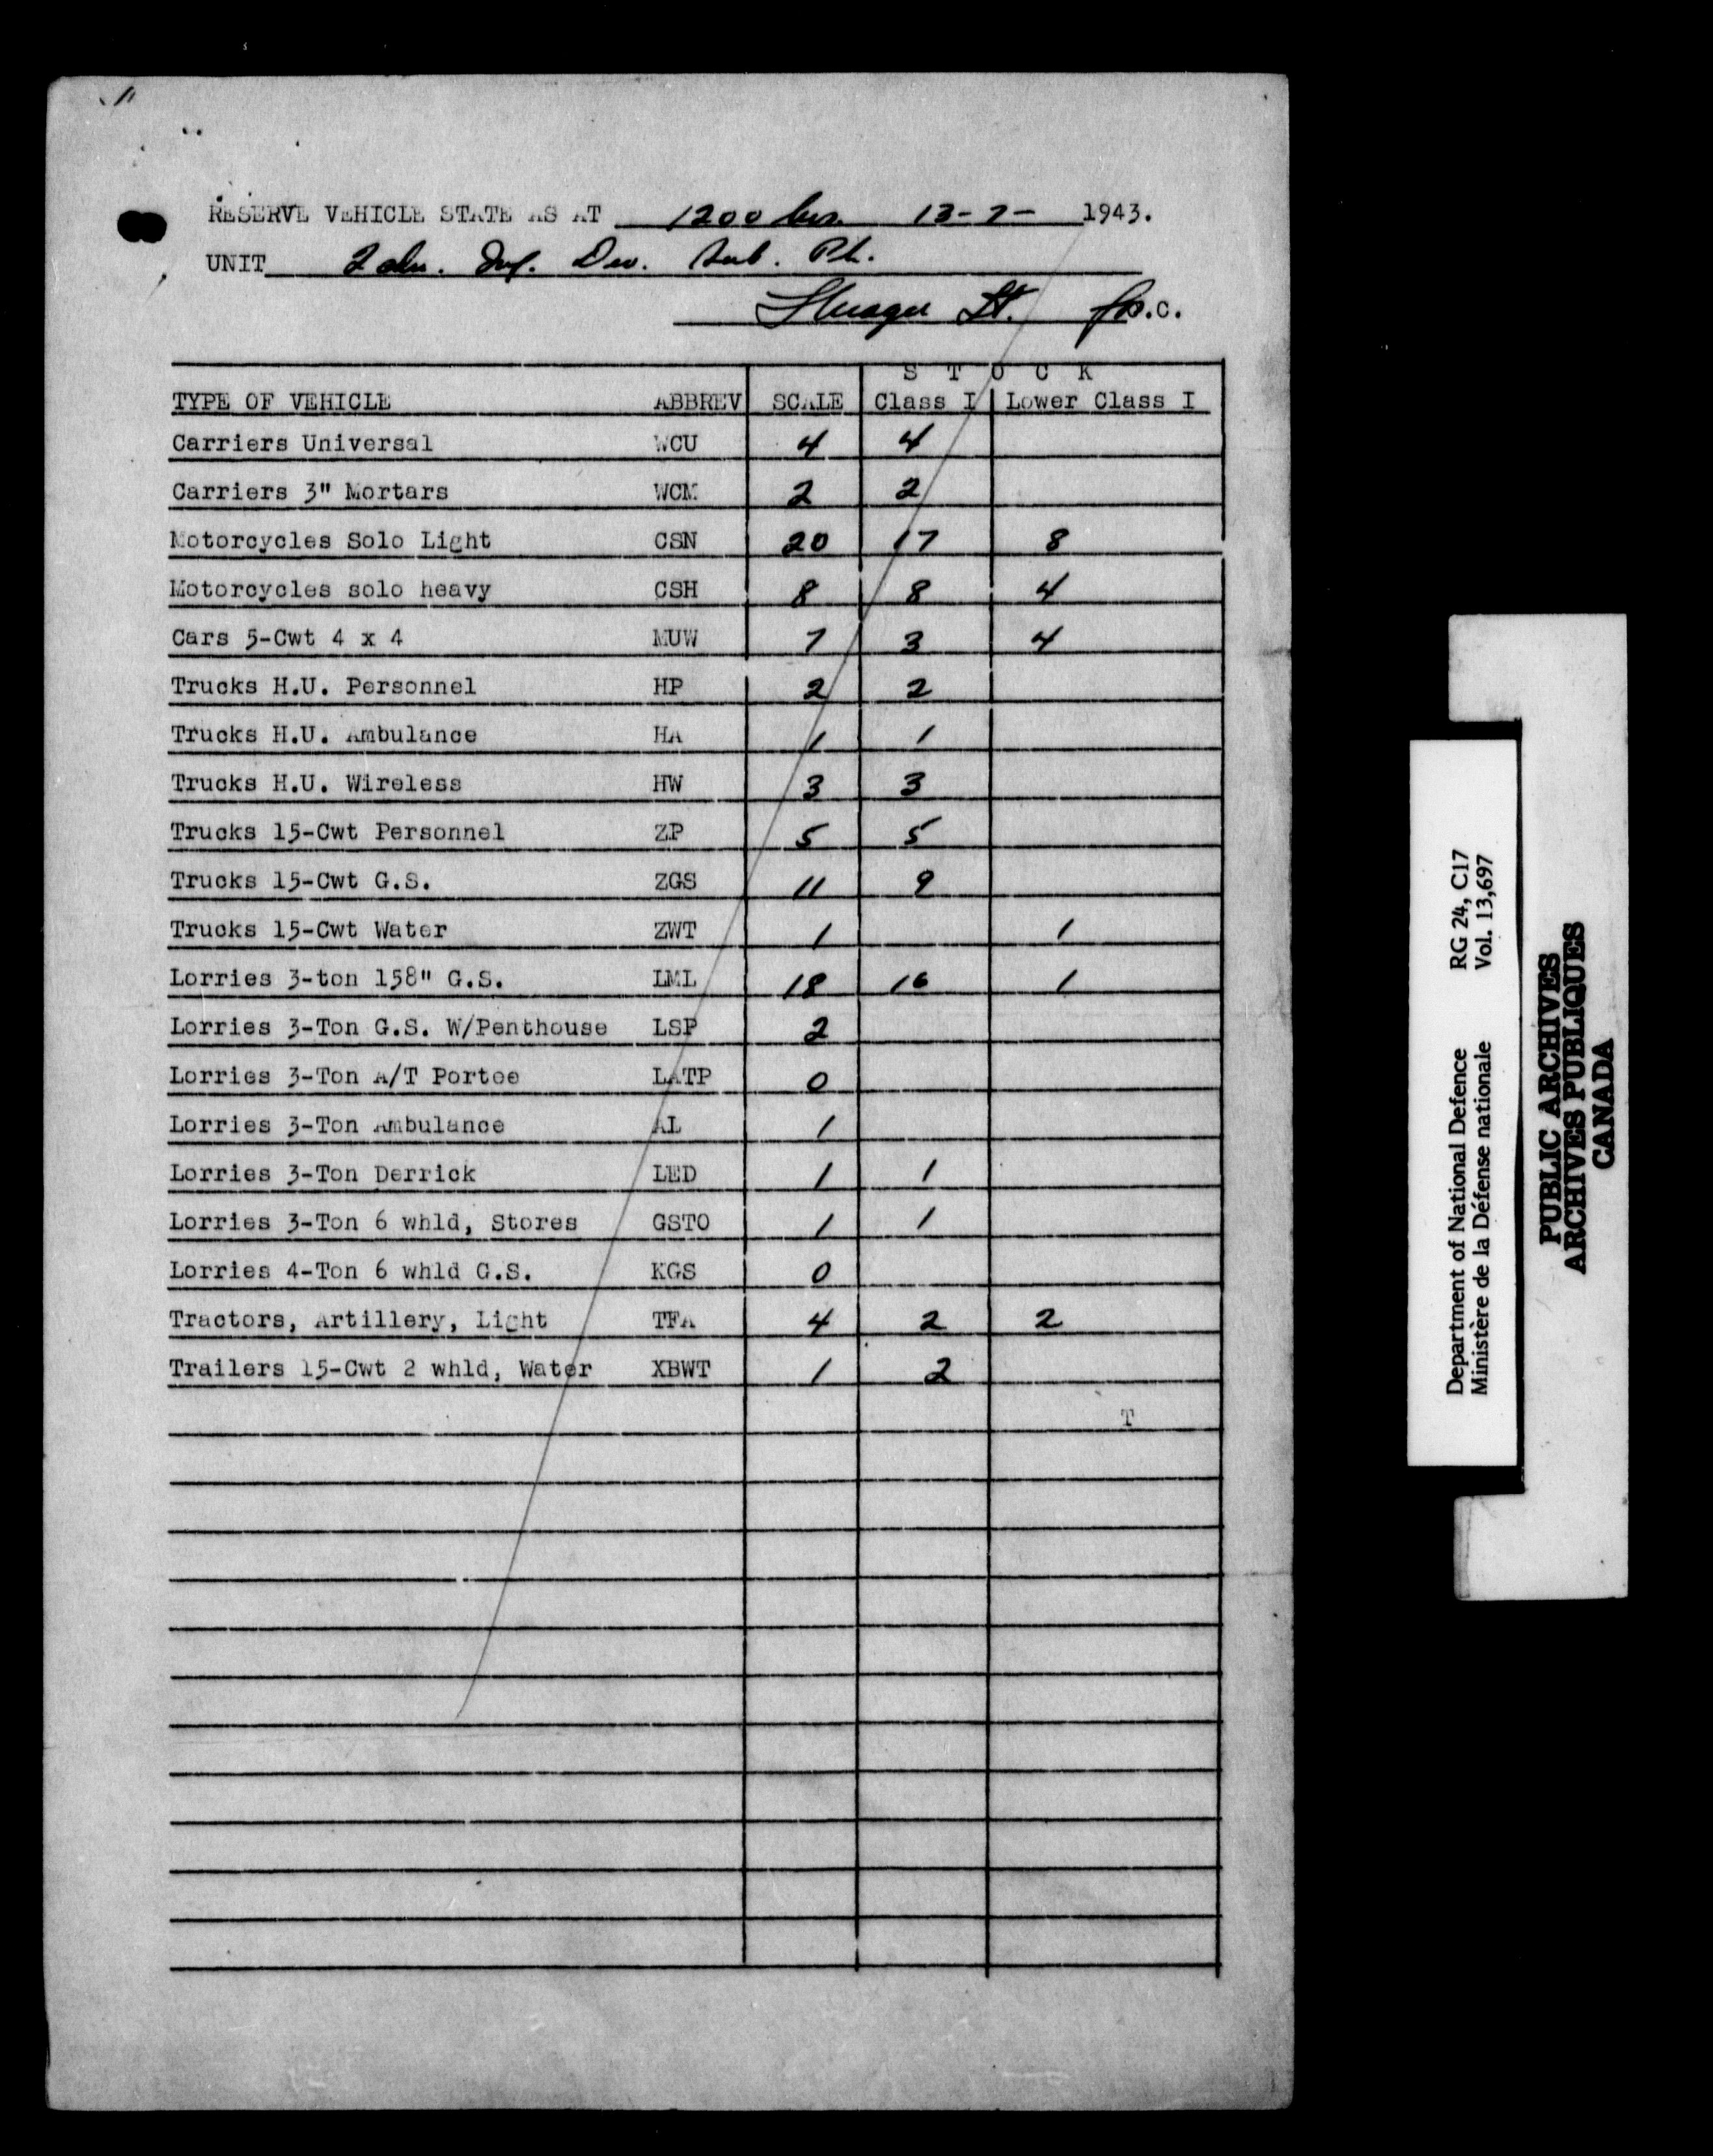 RESERVE VEHICLE STATE AS AT 1200 hrs. 13-7- 1943.
UNIT 2 Cdn. Inf. Div. Sub. Pk.
Lt. for O.C.
S T O C K
TYPE OF VEHICLE ABBREV SCALE Class I Lower Class I
Carriers Universal WCU 4 4
Carriers 3" Mortars WCM 2 2
Motorcycles Solo Light CSN 20 17 8
Motorcycles solo heavy CSH 8 8 4
Cars 5-Cwt 4 x 4 MUW 7 3 4
Trucks H.U. Personnel HP 2 2
Trucks H.U. Ambulance HA 1 1
Trucks H.U. Wireless HW 3 3
Trucks 15-Cwt Personnel ZP 5 5
Trucks 15-Cwt G.S. ZGS 11 9
Trucks 15-Cwt Water ZWT 1 1
Lorries 3-ton 158" G.S. LML 18 16 1
Lorries 3-Ton G.S. W/Penthouse LSP 2
Lorries 3-Ton A/T Portee LATP 0
Lorries 3-Ton Ambulance AL 1
Lorries 3-Ton Derrick LED 1 1
Lorries 3-Ton 6 whld, Stores GSTO 1 1
Lorries 4-Ton 6 whld G.S. KGS 0
Tractors, Artillery, Light TFA 4 2 2
Trailers 15-Cwt 2 whld, Water XBWT 1 2
T
Department of National Defence RG 24, C17
Ministère de la Défense nationale Vol. 13,697
PUBLIC ARCHIVES
ARCHIVES PUBLIQUES
CANADA